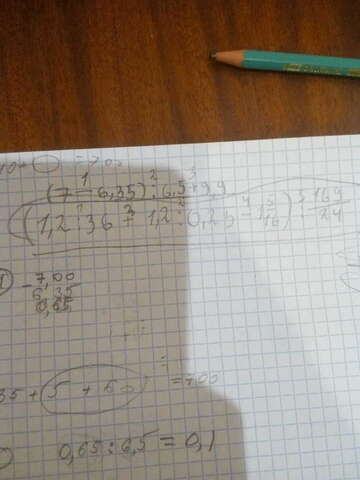 = 7,00
(7 - 6,35) : 6,5 + 9,9
(1,2 : 36 + 1,2 : 0,25 - 1 5/16) : 169/24
- 7,00
6,35
0,65
35 + 5 + 60
= 7,00
0,65 : 6,5 = 0,1